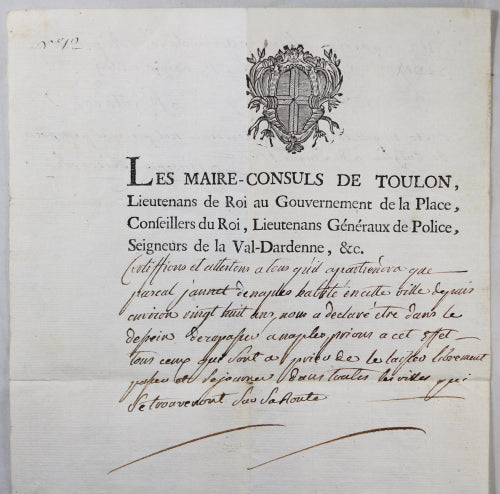 LES MAIRE-CONSULS DE TOULON,
Lieutenans de Roi au Gouvernement de la Place,
Conseillers du Roi, Lieutenans Généraux de Police,
Seigneurs de la Val-Dardenne, &c.
Certiffions et attestons a tous qu'il apartiendra que
pascal jaunet de naples habité en cette ville depuis
environ vingt huit ans, nous a declaré être dans le
dessein de repasser a naples prions a cet effet
tous ceux qui sont a prier de le laisser librement
passer et sejourner dans toutes les villes qui
se trouveront sur sa Route